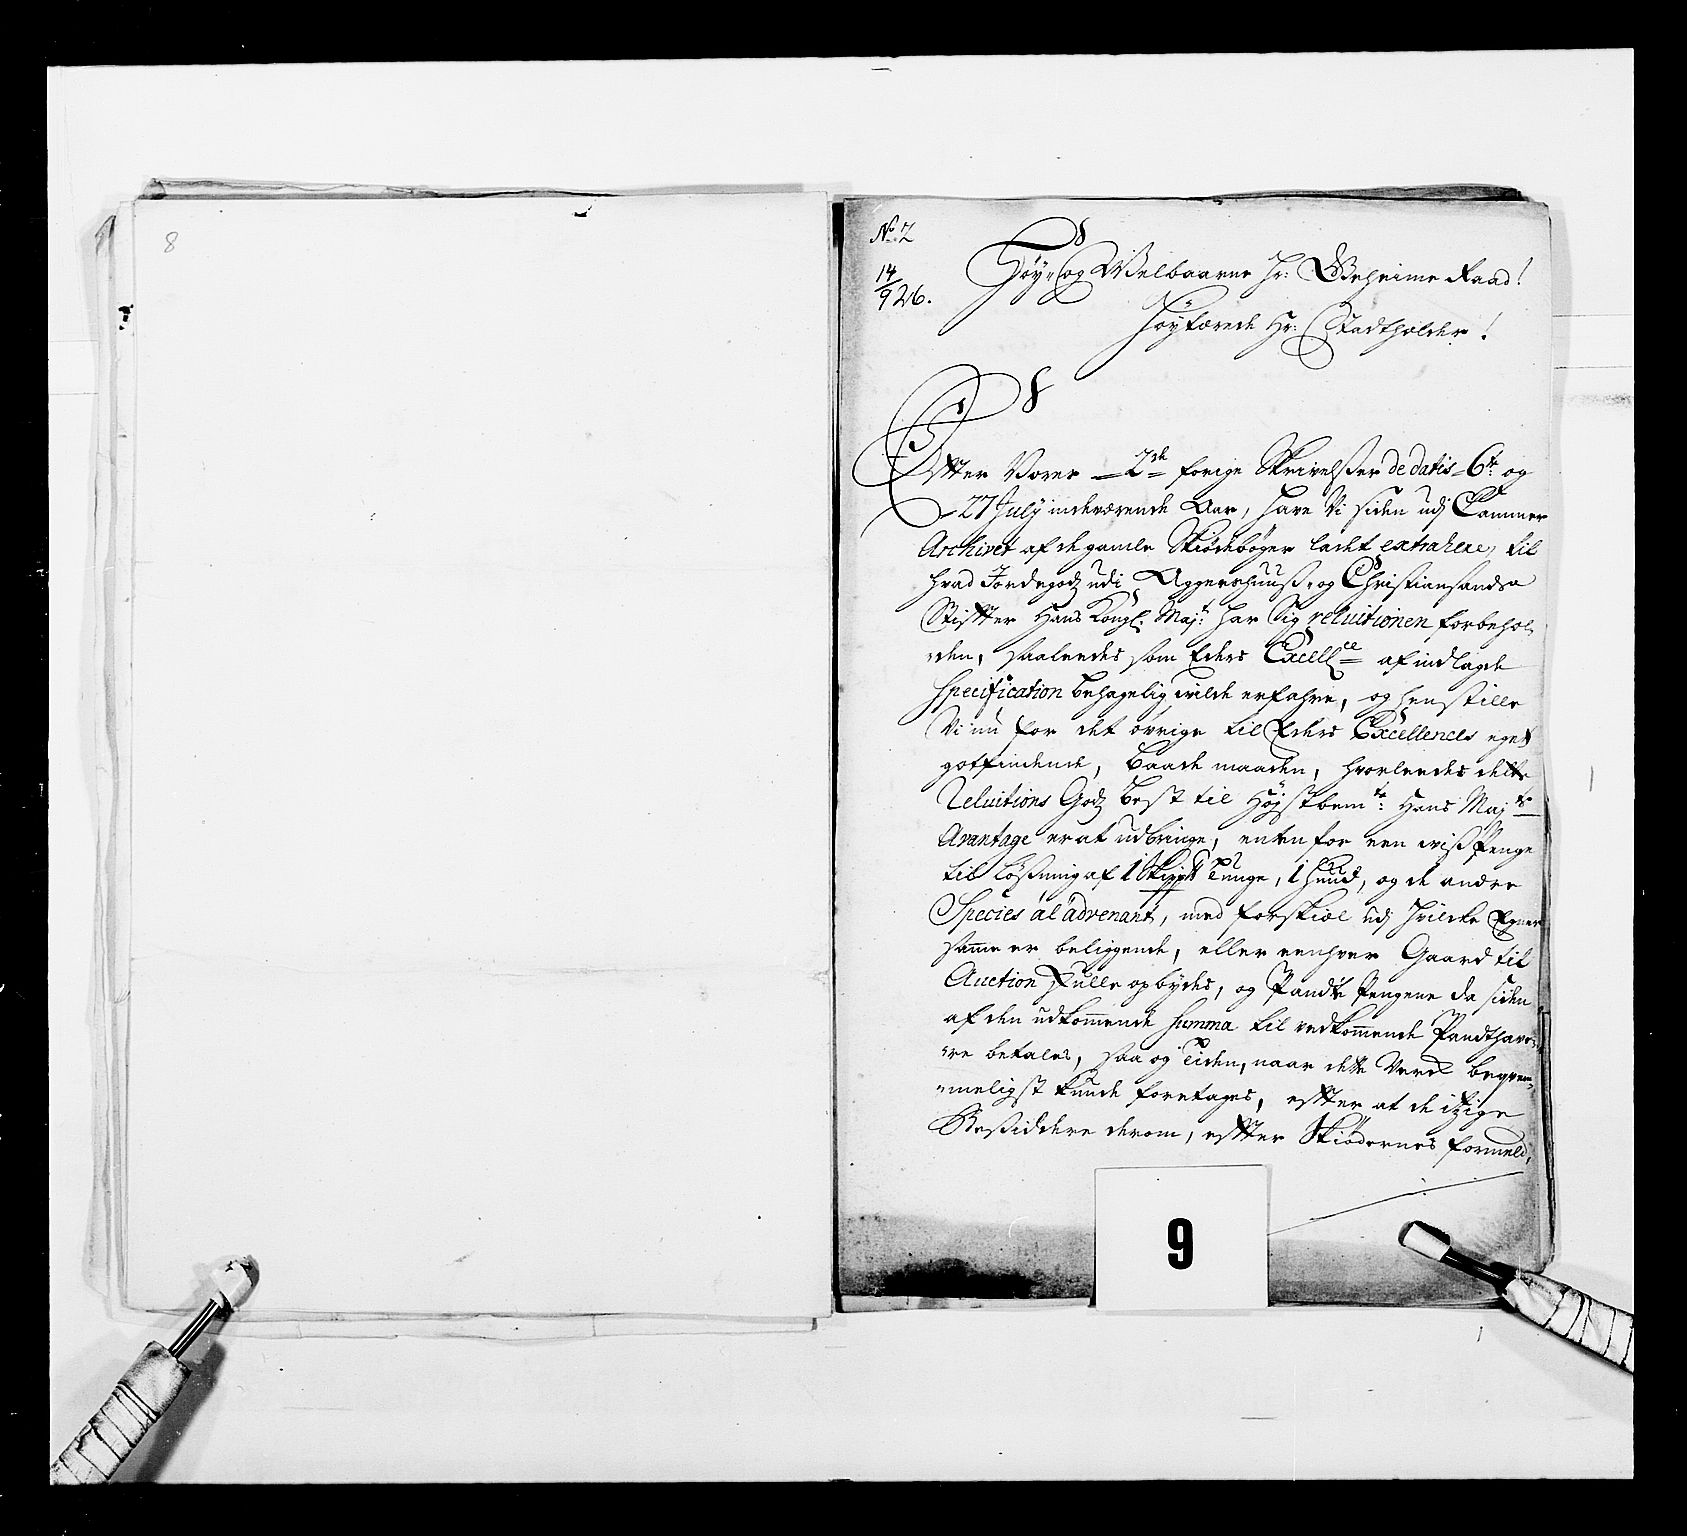 8
No 2
14/926.
Høy- og Welbaarne Hr: Geheime Raad!
Høyførende Hr: Stadtholder!
Efter Vores 2de forige Skrivelßer de datis 6te og
27 July indeværende Aar, have Vi siden udj Cammer
Archivet af de gamle Skiødebøger ladet extrahere, til
hvad Jordegodz udi Aggershuuß- og Christiansands
Stifter Hans Kongl. Maj:t har Sig reluitionen forbehol,
,den, saaledes som Eders Excellce af indlagde
Specification behagelig vilde erfahre, og henstille
Vi nu for det øvrige til Eders Excellences eget
gotfindende, baade maaden, hvorledes dette
Reluitions Godz best til Højstbemte: Hans Majts
Avantage er at udbringe, enten for een viß Penge
til løßning af 1 Skippd Tunge, 1 Huud, og de andre
Species al advenant, med forskiæl udj hvilcke Egner
samme er beliggende, eller eenhver Gaard til
Auction skulle opbydes, og Pandte Pengene da siden
af den udkommende Summa til vedkommende Pandthave,
,re betales, saa og Tiden, naar dette Verck beqvem,
,meligst kunde foretages, effter at de itzige
Beßiddere derom, effter Skiødernes formeld,
9